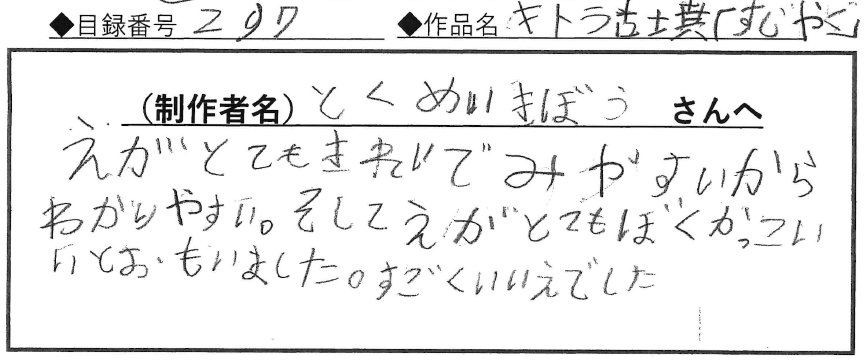 ◆目録番号 297 ◆作品名 キトラ古土墳「すじやく」
(制作者名)とくめいきぼう さんへ
えがとてもきれいでみやすいから
わかりやすい。そしてえがとてもぼくかっこい
いとおもいました。すごくいいえでした